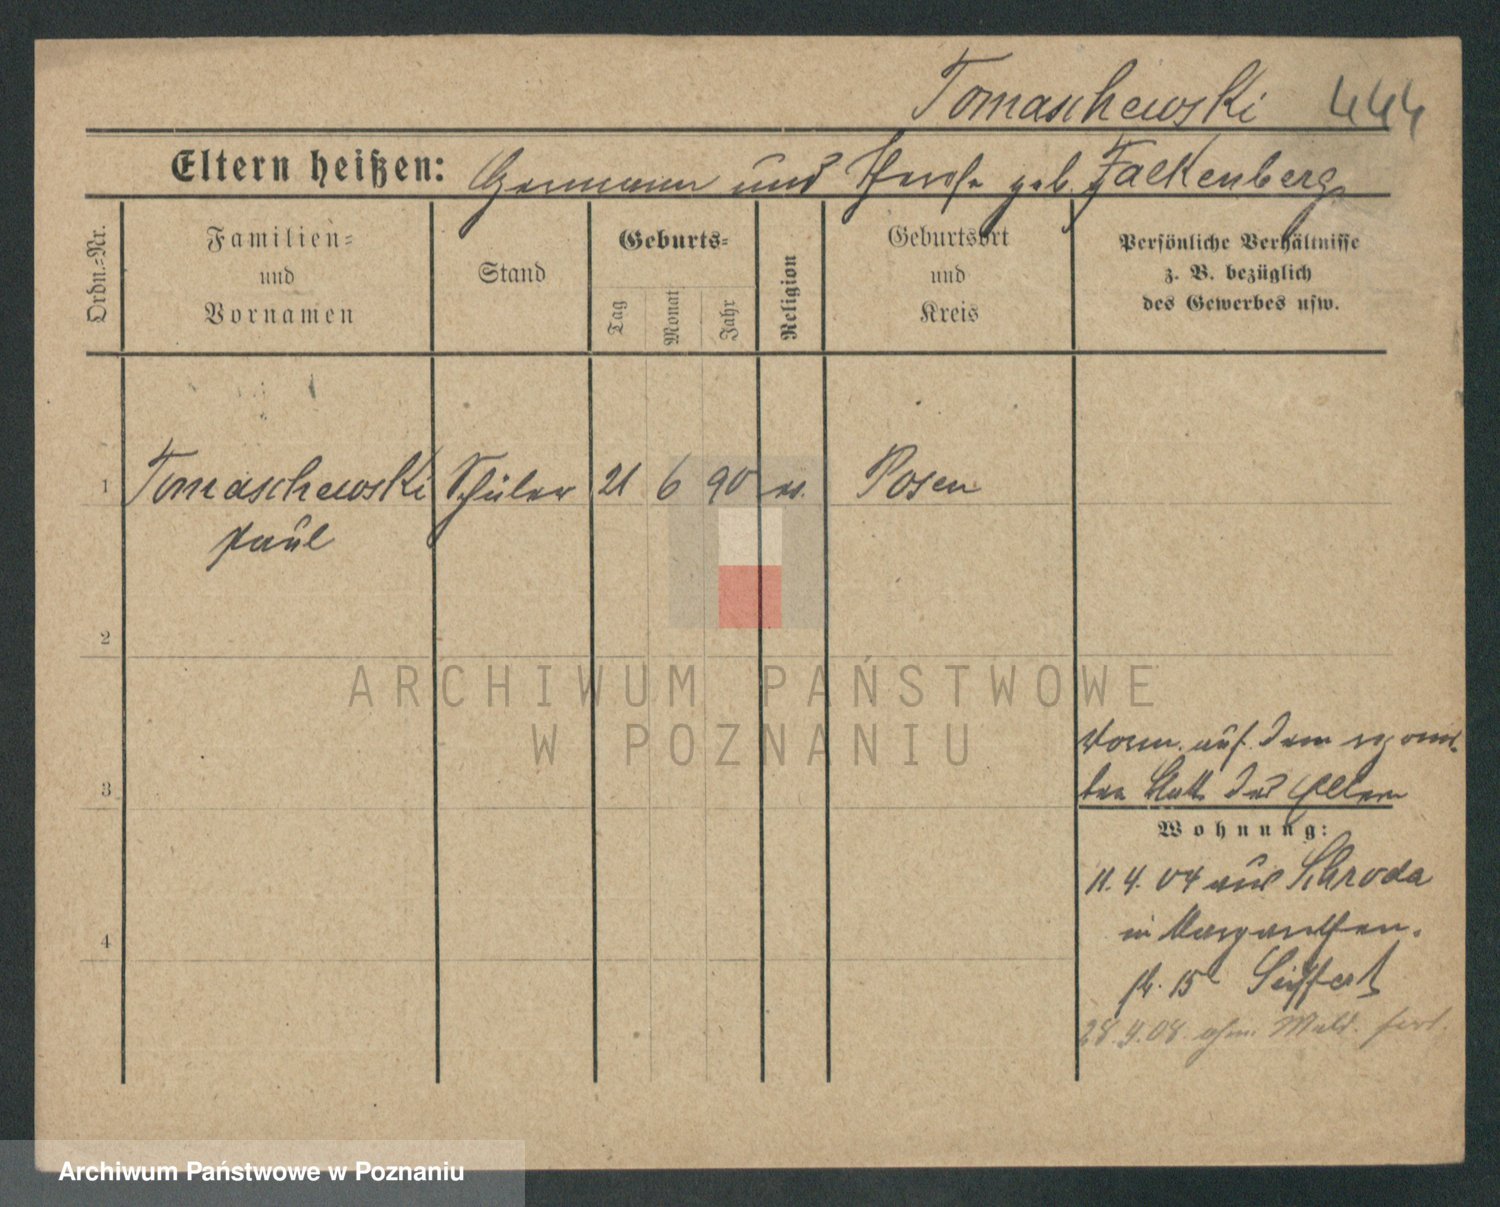 Tomaschewski 444
Eltern heißen: Hermann und Therese geb. Falkenberg
Ordn.-Nr.
Familien-
und
Vornamen
Stand
Geburts-
Tag
Monat
Jahr
Religion
Geburtsort
und
Kreis
Persönliche Verhältnisse
z. B. bezüglich
des Gewerbes usw.
1 Tomaschewski Schüler 21 6 90 ev. Posen
Paul
2
vorm. auf dem
3 Blatt der Eltern
Wohnung:
11. 4. 04 aus Schroda
4 in Margarethen-
str. 15 Seiffert
28.9.08. ohne Meld. fort.
ARCHIWUM PAŃSTWOWE
W POZNANIU
Archiwum Państwowe w Poznaniu